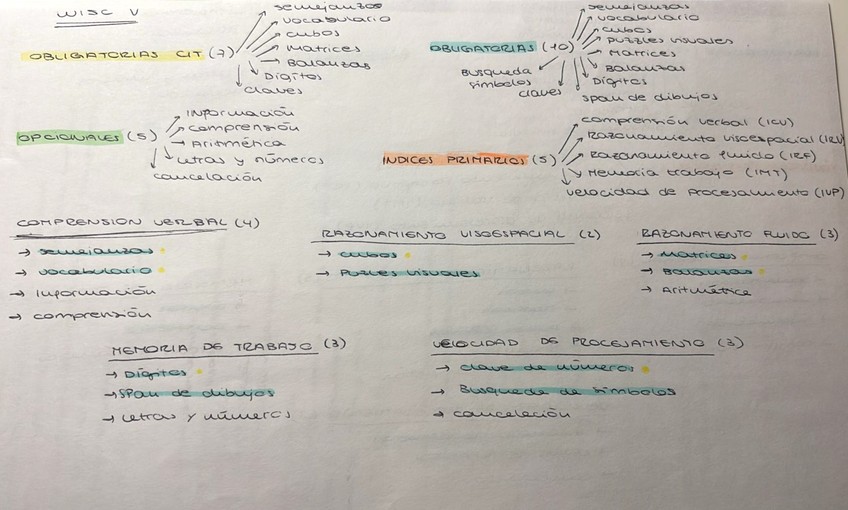 WISC V
OBLIGATORIAS CIT (7)
semejanzas
vocabulario
cubos
Matrices
Balanzas
Dígitos
claves
OBLIGATORIAS (10)
semejanzas
vocabulario
cubos
puzzles visuales
Matrices
Balanzas
Dígitos
span de dibujos
claves
Busqueda
símbolos
OPCIONALES (5)
Información
comprensión
Aritmética
Letras y números
cancelación
INDICES PRIMARIOS (5)
comprensión verbal (ICV)
Razonamiento viscespacial (IRV)
Razonamiento fluido (IRF)
Memoria trabajo (IMT)
velocidad de Procesamiento (IVP)
COMPRENSION VERBAL (4)
→ semejanzas
→ vocabulario
→ Información
→ comprensión
RAZONAMIENTO VISOESPACIAL (2)
→ cubos
→ Puzles visuales
RAZONAMIENTO FLUIDO (3)
→ Matrices
→ Balanzas
→ Aritmética
MEMORIA DE TRABAJO (3)
→ Dígitos
→ Span de dibujos
→ Letras y números
VELOCIDAD DE PROCESAMIENTO (3)
→ clave de números
→ Busqueda de símbolos
→ cancelación